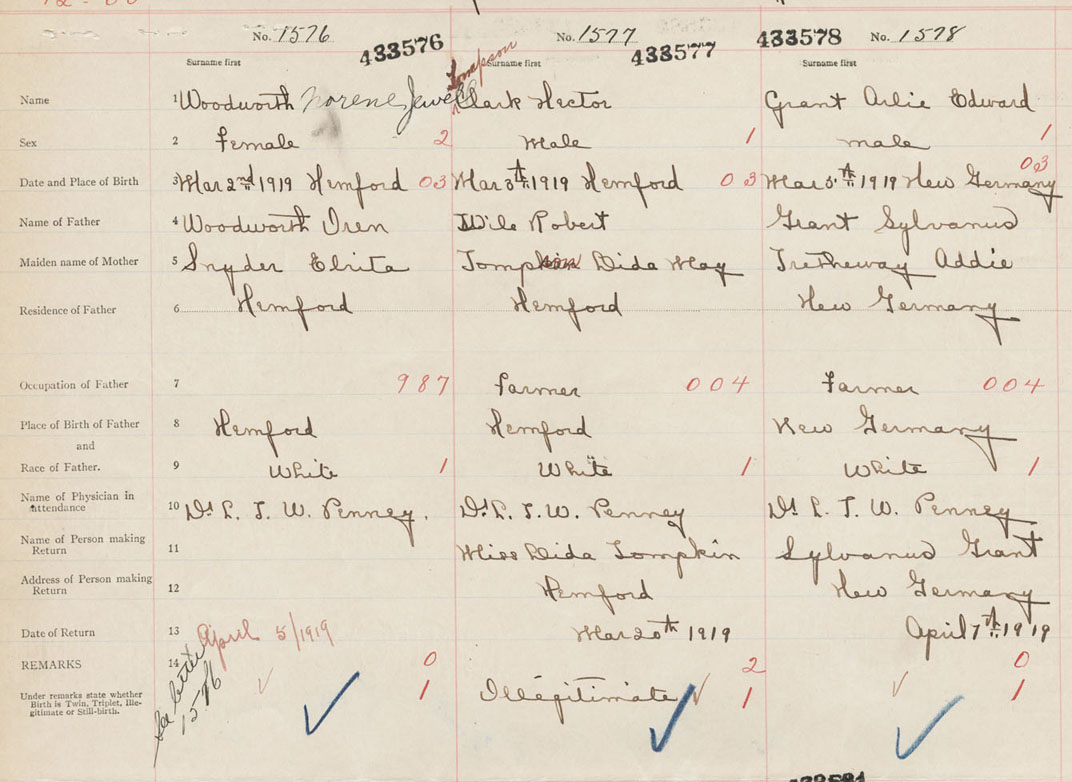 12-00
No. 1576 433576 No. 1577 433577 433578 No. 1578
Surname first Tompson Surname first Surname first
Name 1 Woodworth Norene Jewell Clark Hector Grant Arlie Edward
Sex 2 Female 2 Male 1 male 1
Date and Place of Birth 3 Mar 2nd 1919 Hemford 03 Mar 5th 1919 Hemford 03 Mar 5th 1919 New Germany 03
Name of Father 4 Woodworth Oren Wile Robert Grant Sylvanus
Maiden name of Mother 5 Snyder Elvita Tompkin Dida May Tretheway Addie
Residence of Father 6 Hemford Hemford New Germany
Occupation of Father 7 987 Farmer 004 Farmer 004
Place of Birth of Father 8 Hemford Hemford New Germany
and
Race of Father. 9 White 1 White 1 White 1
Name of Physician in attendance 10 Dr L. T. W. Penney. Dr L. T. W. Penney Dr L. T. W. Penney
Name of Person making Return 11 Miss Dida Tompkin Sylvanus Grant
Address of Person making Return 12 Hemford New Germany
Date of Return 13 April 5/1919 Mar 20th 1919 April 7th 1919
REMARKS 14 0 2 0
Under remarks state whether Birth is Twin, Triplet, Illegitimate or Still-birth. 1 Illegitimate 1 1
See letter 1576